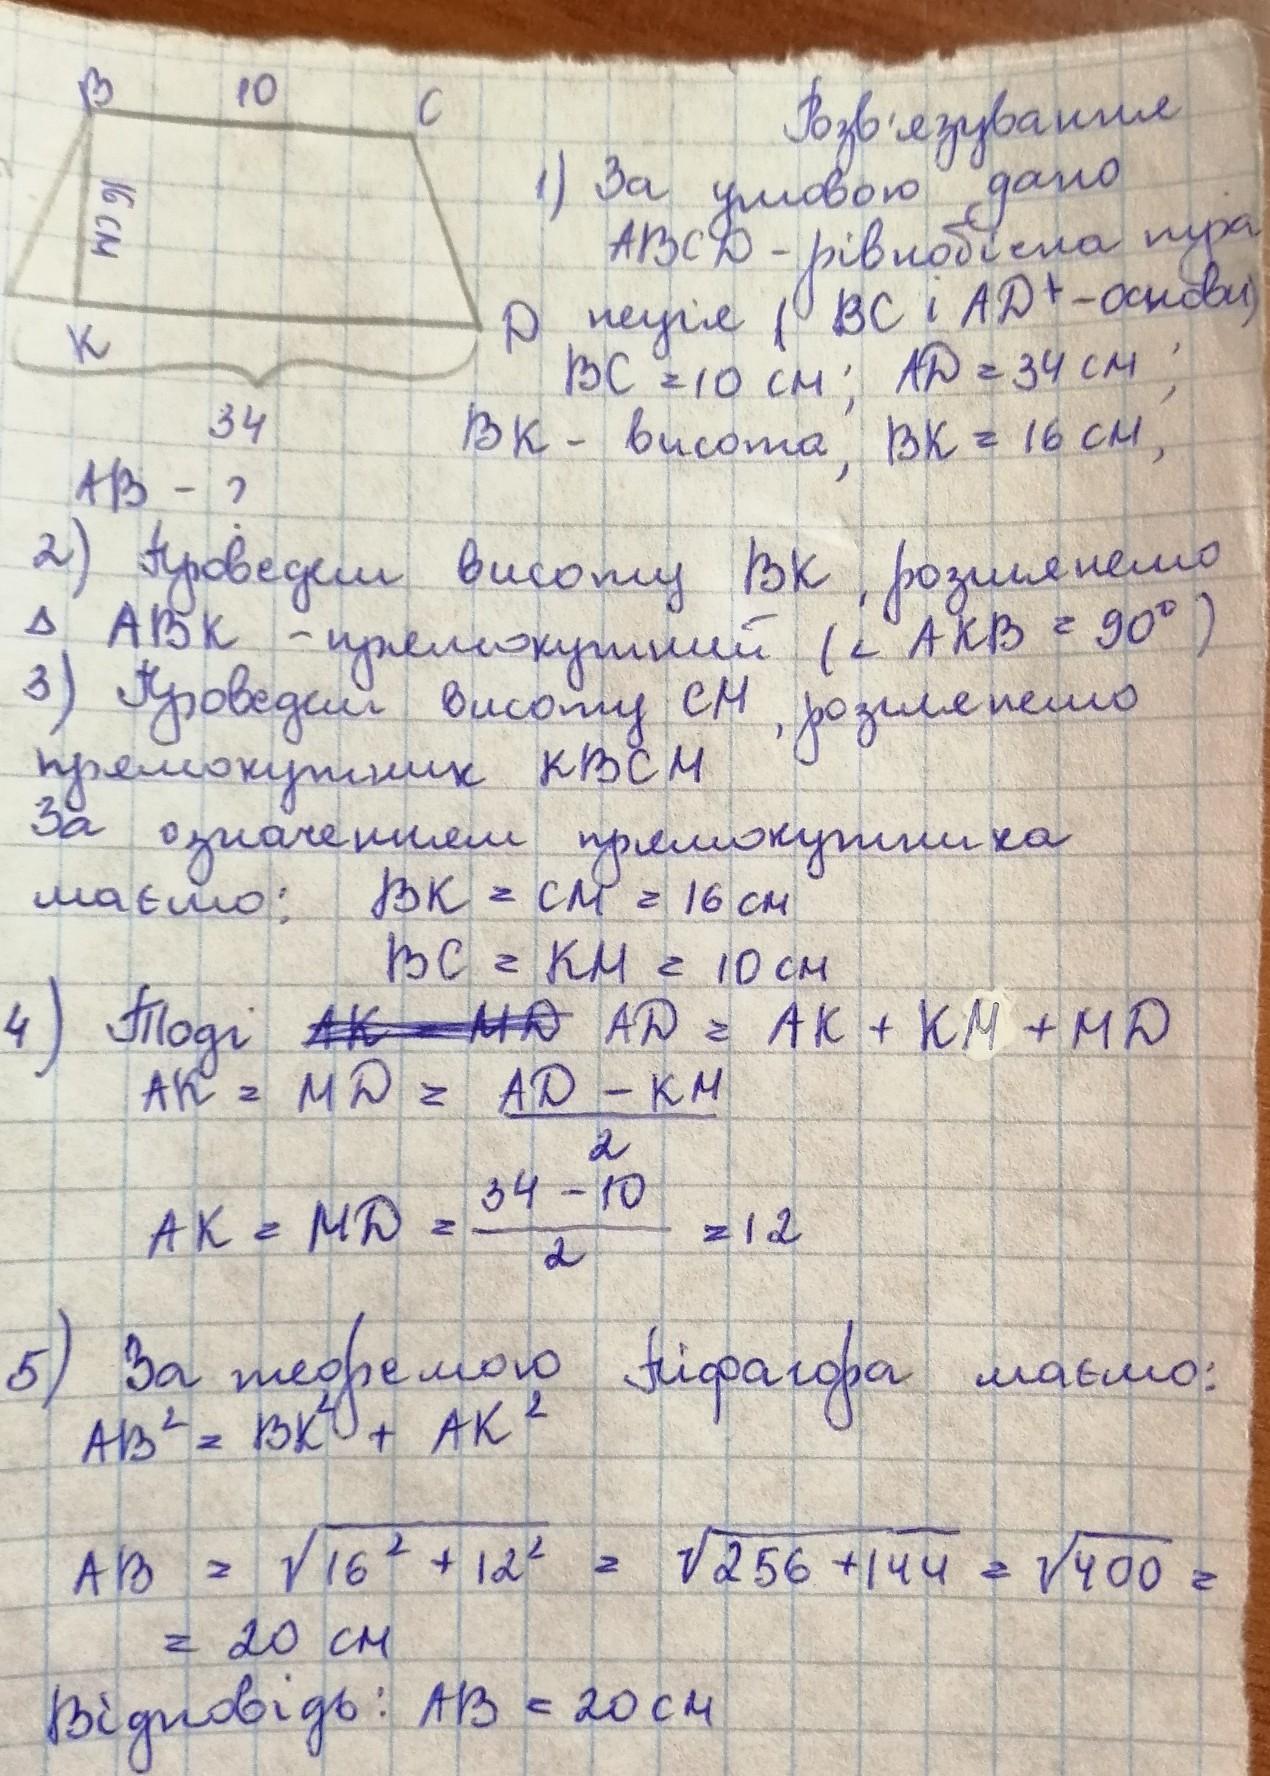 B 10 C
16 см
K D
34
AB - ?
Розв'язування
1) За умовою дано
ABCD - рівнобічна тра
пеція ( BC і AD - основи)
BC = 10 см; AD = 34 см;
BK - висота, BK = 16 см,
2) Проведем висоту BK, розглянемо
Δ ABK - прямокутний (∠ AKB = 90°)
3) Проведем висоту CM, розглянемо
прямокутник KBCM
За означенням прямокутника
маємо: BK = CM = 16 см
BC = KM = 10 см
4) Тоді AK = MD AD = AK + KM + MD
AK = MD = AD - KM
2
AK = MD = 34 - 10 = 12
2
5) За теоремою Піфагора маємо:
AB² = BK² + AK²
AB = √16² + 12² = √256 + 144 = √400 =
= 20 см
Відповідь: AB = 20 см